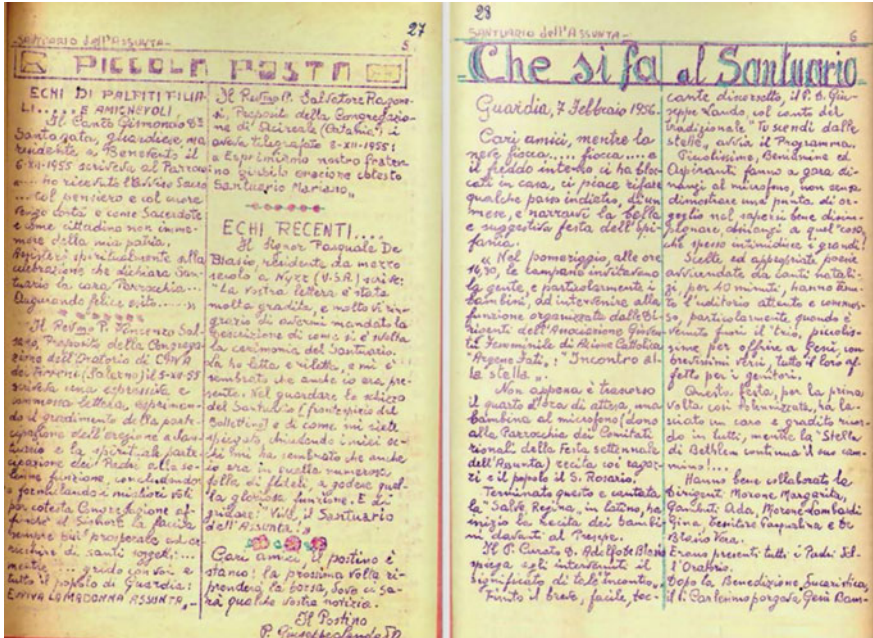 27
SANTUARIO dell'ASSUNTA-
5
PICCOLA POSTA
ECHI DI PALPITI FILIA-
LI..... E AMICHEVOLI
Il Canto Gismondo
Santagata, guardiese, ma
residente a Benevento il
6-XII-1955 scriveva al Parroco:
"... ho ricevuto l'Avviso Sacro
... col pensiero e col cuore
vengo costà e come Sacerdote
e come cittadino non imme-
more della mia patria.
Assisterò spiritualmente alla
celebrazione che dichiara San-
tuario la cara Parrocchia...
Augurando felice esito.....»
Il Rev.mo P. Vincenzo
Preposito della Congrega-
zione dell'Oratorio di CAVA
dei Tirreni (Salerno) il
scriveva una espressiva e
commossa lettera, esprimen-
do il gradimento della parte-
cipazione dell'erezione a San-
tuario e la spirituale parte-
cipazione dei Padri alla so-
lenne funzione, concludendo
e formulando i migliori voti
per cotesta Congregazione af-
finché il Signore la faccia
sempre più prosperare ed ar-
ricchire di santi soggetti...
mentre.... grido con voi e
tutto il popolo di Guardia:
EVVIVA LA MADONNA ASSUNTA,-
Il Rev.mo P. Salvatore Ragone-
si, Preposito della Congregazio-
ne di Acireale (Catania) ci
aveva telegrafato 8-XII-1955:
" Esprimiamo nostro frater
no giubilo erezione cotesto
Santuario Mariano„
ECHI RECENTI....
Il Signor Pasquale De
Blasio, residente da mezzo
secolo a (U.S.A.) scrive:
"La vostra lettera è stata
molto gradita, e molto vi rin-
grazio di avermi mandato la
descrizione di come si è svolta
la cerimonia del Santuario.
La ho letta e riletta, e mi è
sembrato che anche io ero pre-
sente. Nel guardare lo schizzo
del Santuario (frontespizio del
Bollettino) e di come mi siete
spiegato chiudendo i miei oc-
chi mi ha sembrato che anche
io ero in quella numerosa
folla di fedeli, a godere quel-
la gloriosa funzione. E di
gridare: "Viva il Santuario
dell'Assunta!„
Cari amici, il postino è
stanco: la prossima volta ri-
prenderà la borsa, dove ci sa-
rà qualche vostra notizia.
Il Postino
P. Giuseppe Lando
28
SANTUARIO dell'ASSUNTA-
6
Che si fa al Santuario
Guardia, 7 Febbraio 1956.
Cari amici, mentre la
neve fiocca..... fiocca.... e
il freddo intenso ci ha bloc-
cati in casa, ci piace rifare
qualche passo indietro, di un
mese, e narrarvi la bella
e suggestiva festa dell'Epi-
fania.
« Nel pomeriggio, alle ore
16,30, le campane invitavano
la gente, e particolarmente i
bambini, ad intervenire alla
funzione organizzata dalle Di-
rigenti dell'Associazione Gioven-
tù Femminile di Azione Cattolica
"Argene Fati„: "Incontro al-
la stella„.
Non appena è trascorso
il quarto d'ora di attesa, una
bambina al microfono (dono
alla Parrocchia dei Comitati
rionali della Festa settennale
dell'Assunta) recita coi ragaz-
zi e il popolo il S. Rosario.
Terminato questo e cantata
la "Salve, Regina„ in latino, ha
inizio la recita dei bambi-
ni davanti al Presepe.
Il P. Curato D. Adolfo De Blasio
spiega agli intervenuti il
significato di tale "incontro„.
Finito il breve, facile, toc-
cante discorsetto, il P. D. Giu-
seppe Lando, col canto del
tradizionale "Tu scendi dalle
stelle„ avvia il Programma.
Piccolissime, Beniamine ed
Aspiranti fanno a gara di-
nanzi al microfono, non senza
dimostrare una punta di or-
goglio nel sapersi bene disim-
pegnare, dinanzi a quel "coso„
che spesso intimidisce i grandi!
Scelte ed appropriate poesie
avvicendate da canti natali-
zi, per 40 minuti, hanno tenu-
to l'uditorio attento e commos-
so, particolarmente quando è
venuto fuori il trio, piccolis-
sime per offrire a Gesù, con
brevissimi versi, tutto il loro af-
fetto per i genitori.
Questa festa, per la prima
volta così solennizzata, ha la-
sciato un caro e gradito ricor-
do in tutti, mentre la "Stella
di Bethlem continua il suo cam-
mino!...
Hanno bene collaborato le
Dirigenti: Morone Margarita,
Garofani Ada, Morone Lombardi
Gina, Pasqualina e De
Blasio Vera.
Erano presenti tutti i Padri del-
l'Oratorio.
Dopo la Benedizione Eucaristica,
il P. Carlomino porgeva Gesù Bam-